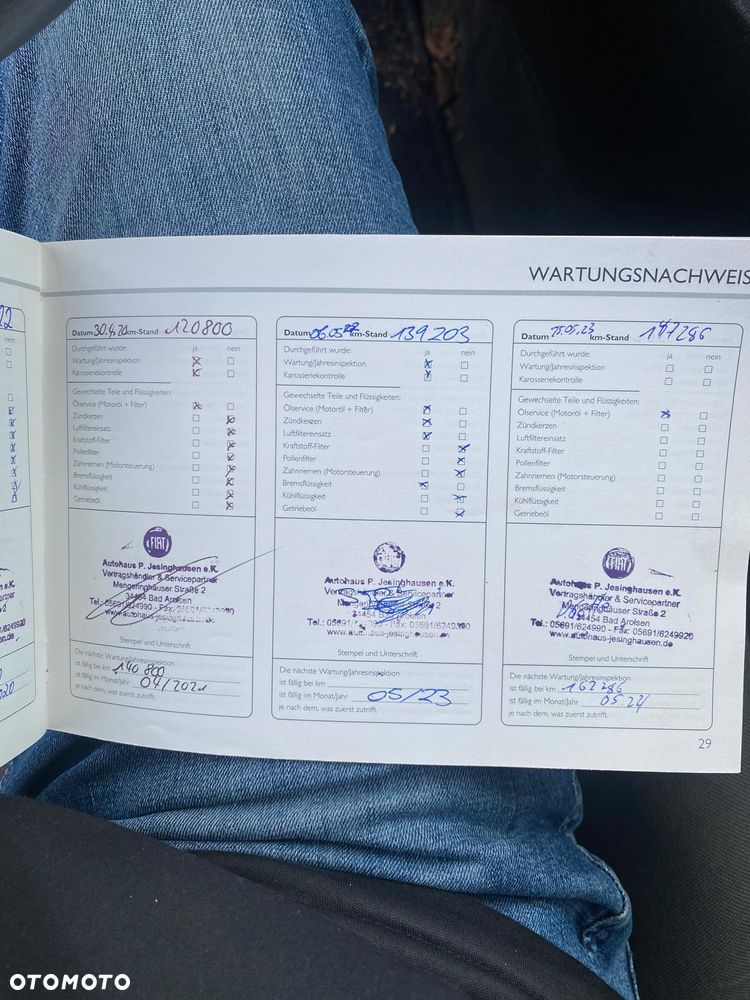 WARTUNGSNACHWEIS
22
nein
Datum 30.4.20 km-Stand 120800
Durchgeführt wurde: ja nein
Wartung/Jahresinspektion
Karosseriekontrolle
Gewechselte Teile und Flüssigkeiten:
Ölservice (Motoröl + Filter)
Zündkerzen
Luftfiltereinsatz
Kraftstoff-Filter
Pollenfilter
Zahnriemen (Motorsteuerung)
Bremsflüssigkeit
Kühlflüssigkeit
Getriebeöl
FIAT
Autohaus P. Jesinghausen e.K.
Vertragshändler & Servicepartner
Mengeringhäuser Straße 2
34454 Bad Arolsen
Tel.: 05691/624990 - Fax: 05691/6249920
www.autohaus-jesinghausen.de
Stempel und Unterschrift
Die nächste Wartung/Jahresinspektion
ist fällig bei km 140 800
ist fällig im Monat/Jahr 04/2021
je nach dem, was zuerst zutrifft.
Datum 06.05.22 km-Stand 139203
Durchgeführt wurde: ja nein
Wartung/Jahresinspektion
Karosseriekontrolle
Gewechselte Teile und Flüssigkeiten:
Ölservice (Motoröl + Filter)
Zündkerzen
Luftfiltereinsatz
Kraftstoff-Filter
Pollenfilter
Zahnriemen (Motorsteuerung)
Bremsflüssigkeit
Kühlflüssigkeit
Getriebeöl
Autohaus P. Jesinghausen e.K.
Vertragshändler & Servicepartner
34454 Bad Arolsen
- Fax: 05691/6249920
www.autohaus-jesinghausen.de
Stempel und Unterschrift
Die nächste Wartung/Jahresinspektion
ist fällig bei km
ist fällig im Monat/Jahr 05/23
je nach dem, was zuerst zutrifft.
Datum 15.05.23 km-Stand 147286
Durchgeführt wurde: ja nein
Wartung/Jahresinspektion
Karosseriekontrolle
Gewechselte Teile und Flüssigkeiten:
Ölservice (Motoröl + Filter)
Zündkerzen
Luftfiltereinsatz
Kraftstoff-Filter
Pollenfilter
Zahnriemen (Motorsteuerung)
Bremsflüssigkeit
Kühlflüssigkeit
Getriebeöl
FIAT
Autohaus P. Jesinghausen e.K.
Vertragshändler & Servicepartner
Mengeringhäuser Straße 2
34454 Bad Arolsen
Tel.: 05691/624990 - Fax: 05691/6249920
www.autohaus-jesinghausen.de
Stempel und Unterschrift
Die nächste Wartung/Jahresinspektion
ist fällig bei km 162286
ist fällig im Monat/Jahr 05.24
je nach dem, was zuerst zutrifft.
29
OTOMOTO